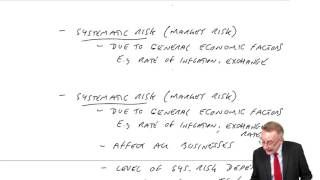 - SYSTEMATIC RISK (MARKET RISK)
- DUE TO GENERAL ECONOMIC FACTORS
E.g RATE OF INFLATION, EXCHANGE
- SYSTEMATIC RISK (MARKET RISK)
- DUE TO GENERAL ECONOMIC FACTORS
E.g RATE OF INFLATION, EXCHANGE
RATES
- AFFECT ALL BUSINESSES
- LEVEL OF SYS. RISK DEPE